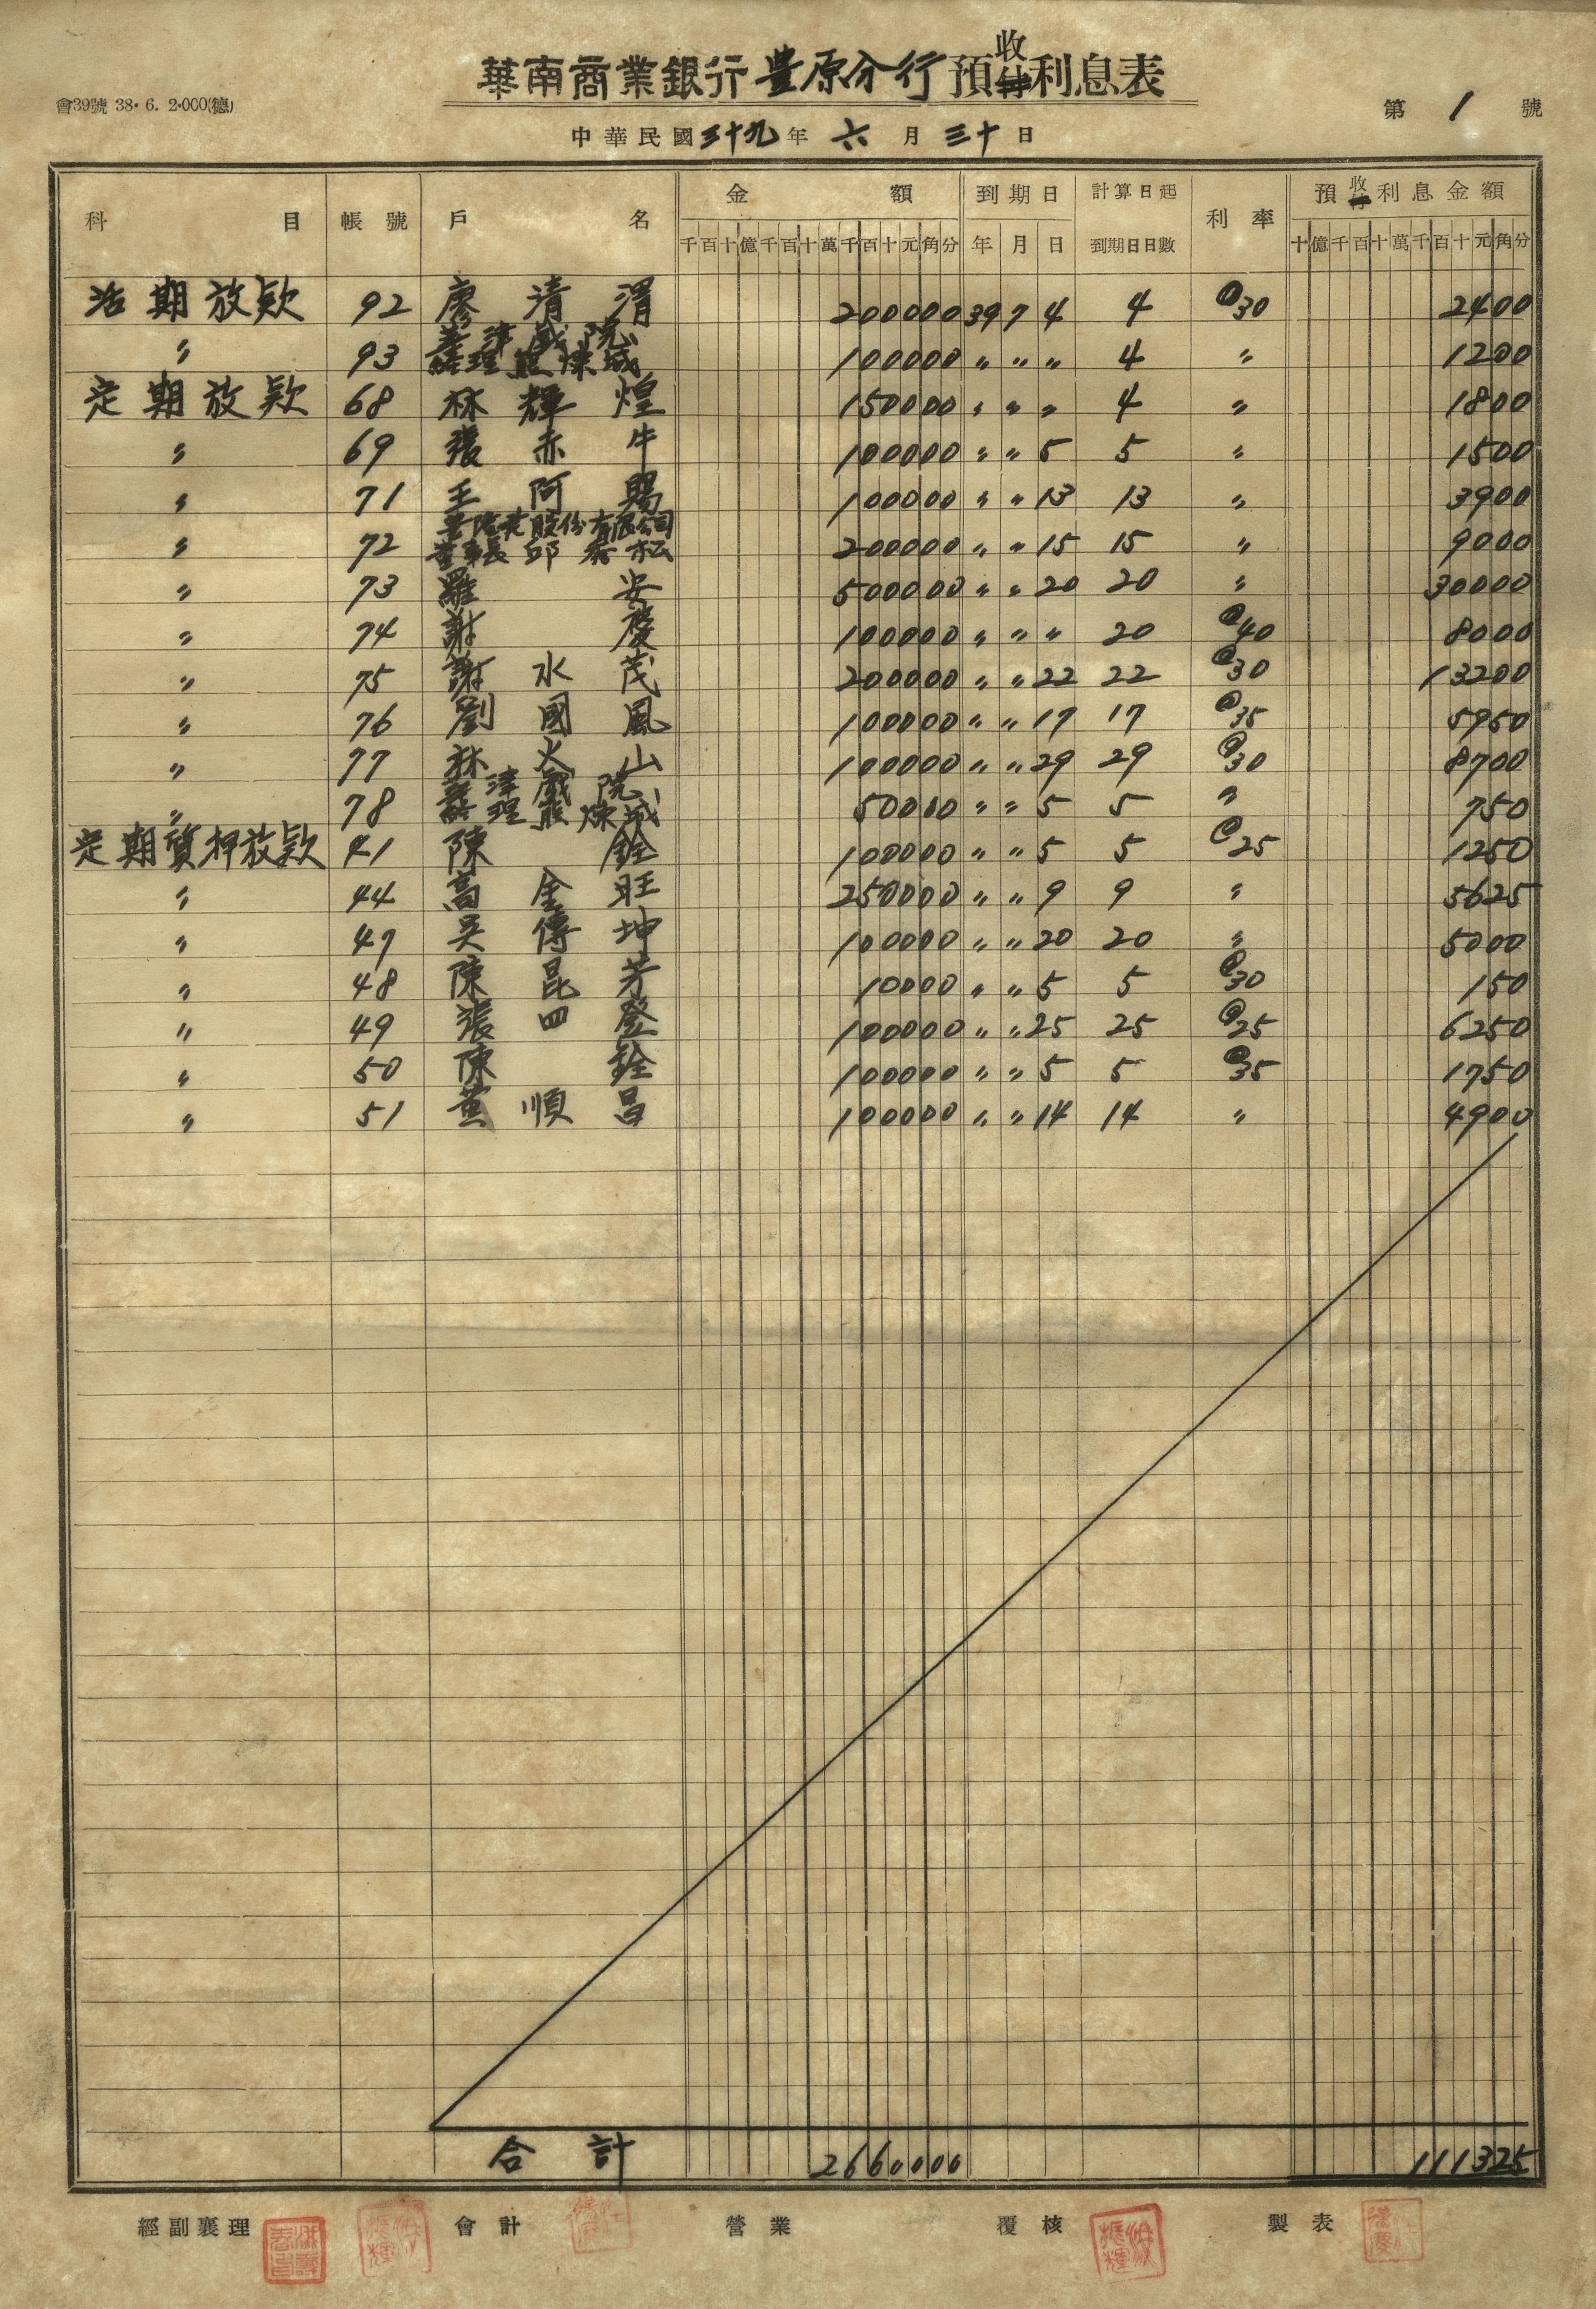 華南商業銀行豐原分行預收付利息表
會39號 38. 6. 2.000(德)
第 1 號
中華民國三十九年 六 月 三十 日
科 目 帳號 戶 名 金 額 到期日 計算日起到期日日數 利率 預收付利息金額
千百十億千百十萬千百十元角分 年 月 日 十億千百十萬千百十元角分
活期放款 92 廖清渭 200000 39 7 4 4 @30 2400
〃 93 戲院 經理 100000 〃 〃 〃 4 〃 1200
定期放款 68 林輝煌 150000 〃 〃 〃 4 〃 1800
〃 69 張赤牛 100000 〃 〃 5 5 〃 1500
〃 71 王阿賜 100000 〃 〃 13 13 〃 3900
〃 72 股份有限公司 董事長 邱 松 200000 〃 〃 15 15 〃 9000
〃 73 羅安 500000 〃 〃 20 20 〃 30000
〃 74 謝慶 100000 〃 〃 〃 20 @40 8000
〃 75 謝水茂 200000 〃 〃 22 22 @30 13200
〃 76 劉國風 100000 〃 〃 17 17 @35 5950
〃 77 林火山 100000 〃 〃 29 29 @30 8700
〃 78 戲院 經理 50000 〃 〃 5 5 〃 750
定期質押放款 41 陳銓 100000 〃 〃 5 5 @25 1250
〃 44 高金旺 250000 〃 〃 9 9 〃 5625
〃 47 吳傳坤 100000 〃 〃 20 20 〃 5000
〃 48 陳昆芳 10000 〃 〃 5 5 @30 150
〃 49 張四登 100000 〃 〃 25 25 @25 6250
〃 50 陳銓 100000 〃 〃 5 5 @35 1750
〃 51 黃順昌 100000 〃 〃 14 14 〃 4900
合計 2660000 111325
經副襄理 會計 營業 覆核 製表